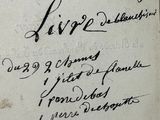 Livre
de blanchissa
du 29 2 chemis
1 gilet de flanelle
1 paire de bas
1 paire de chossette